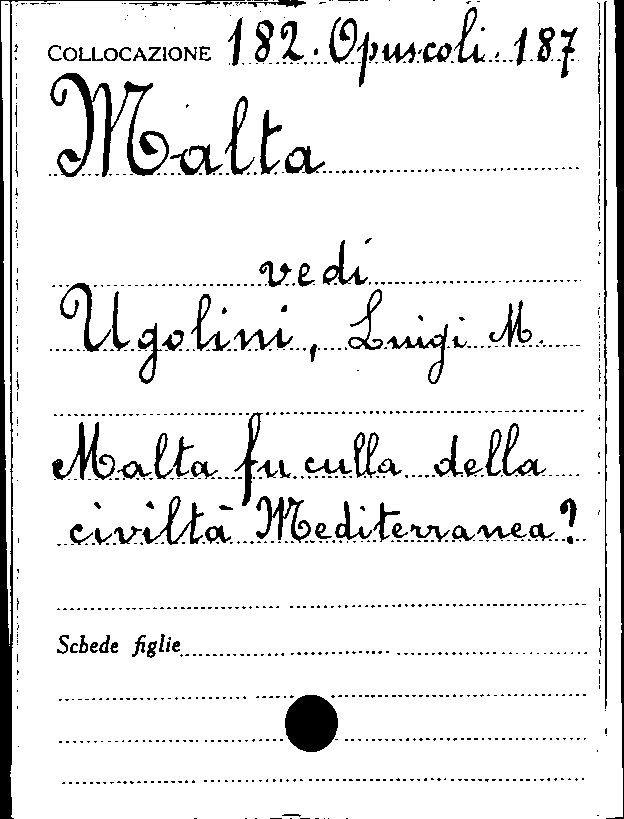 COLLOCAZIONE 182. Opuscoli. 187
Malta
vedi
Ugolini, Luigi M.
Malta fu culla della
civiltà Mediterranea?
Schede figlie